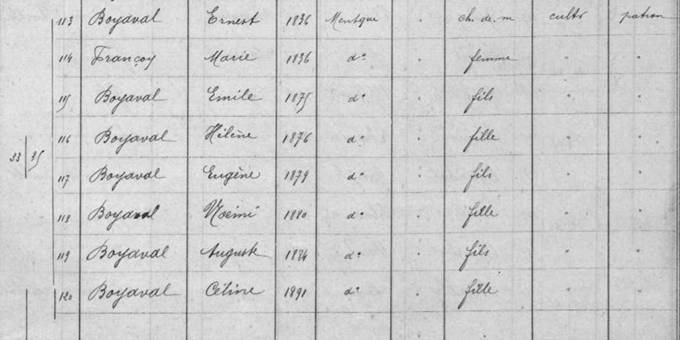 113 Boyaval Ernest 1836 Mentque " ch. de m cultr patron
114 Françoy Marie 1836 do " femme " "
115 Boyaval Emile 1875 do " fils " "
116 Boyaval Hélène 1876 do " fille " "
33 35
117 Boyaval Eugène 1879 do " fils " "
118 Boyaval Noémi 1880 do " fille " "
119 Boyaval August 1884 do " fils " "
120 Boyaval Céline 1891 do " fille " "